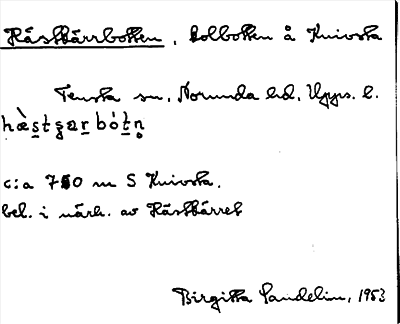 Hästkärrbotten, dolbotten å Knivsta
Tensta sn, Norunda hd, Upps. l.
hæ̀stʂær bótn̥
c:a 750 m S Knivsta.
bel. i närh. av Hästkärret
Birgitta Sandelin, 1953